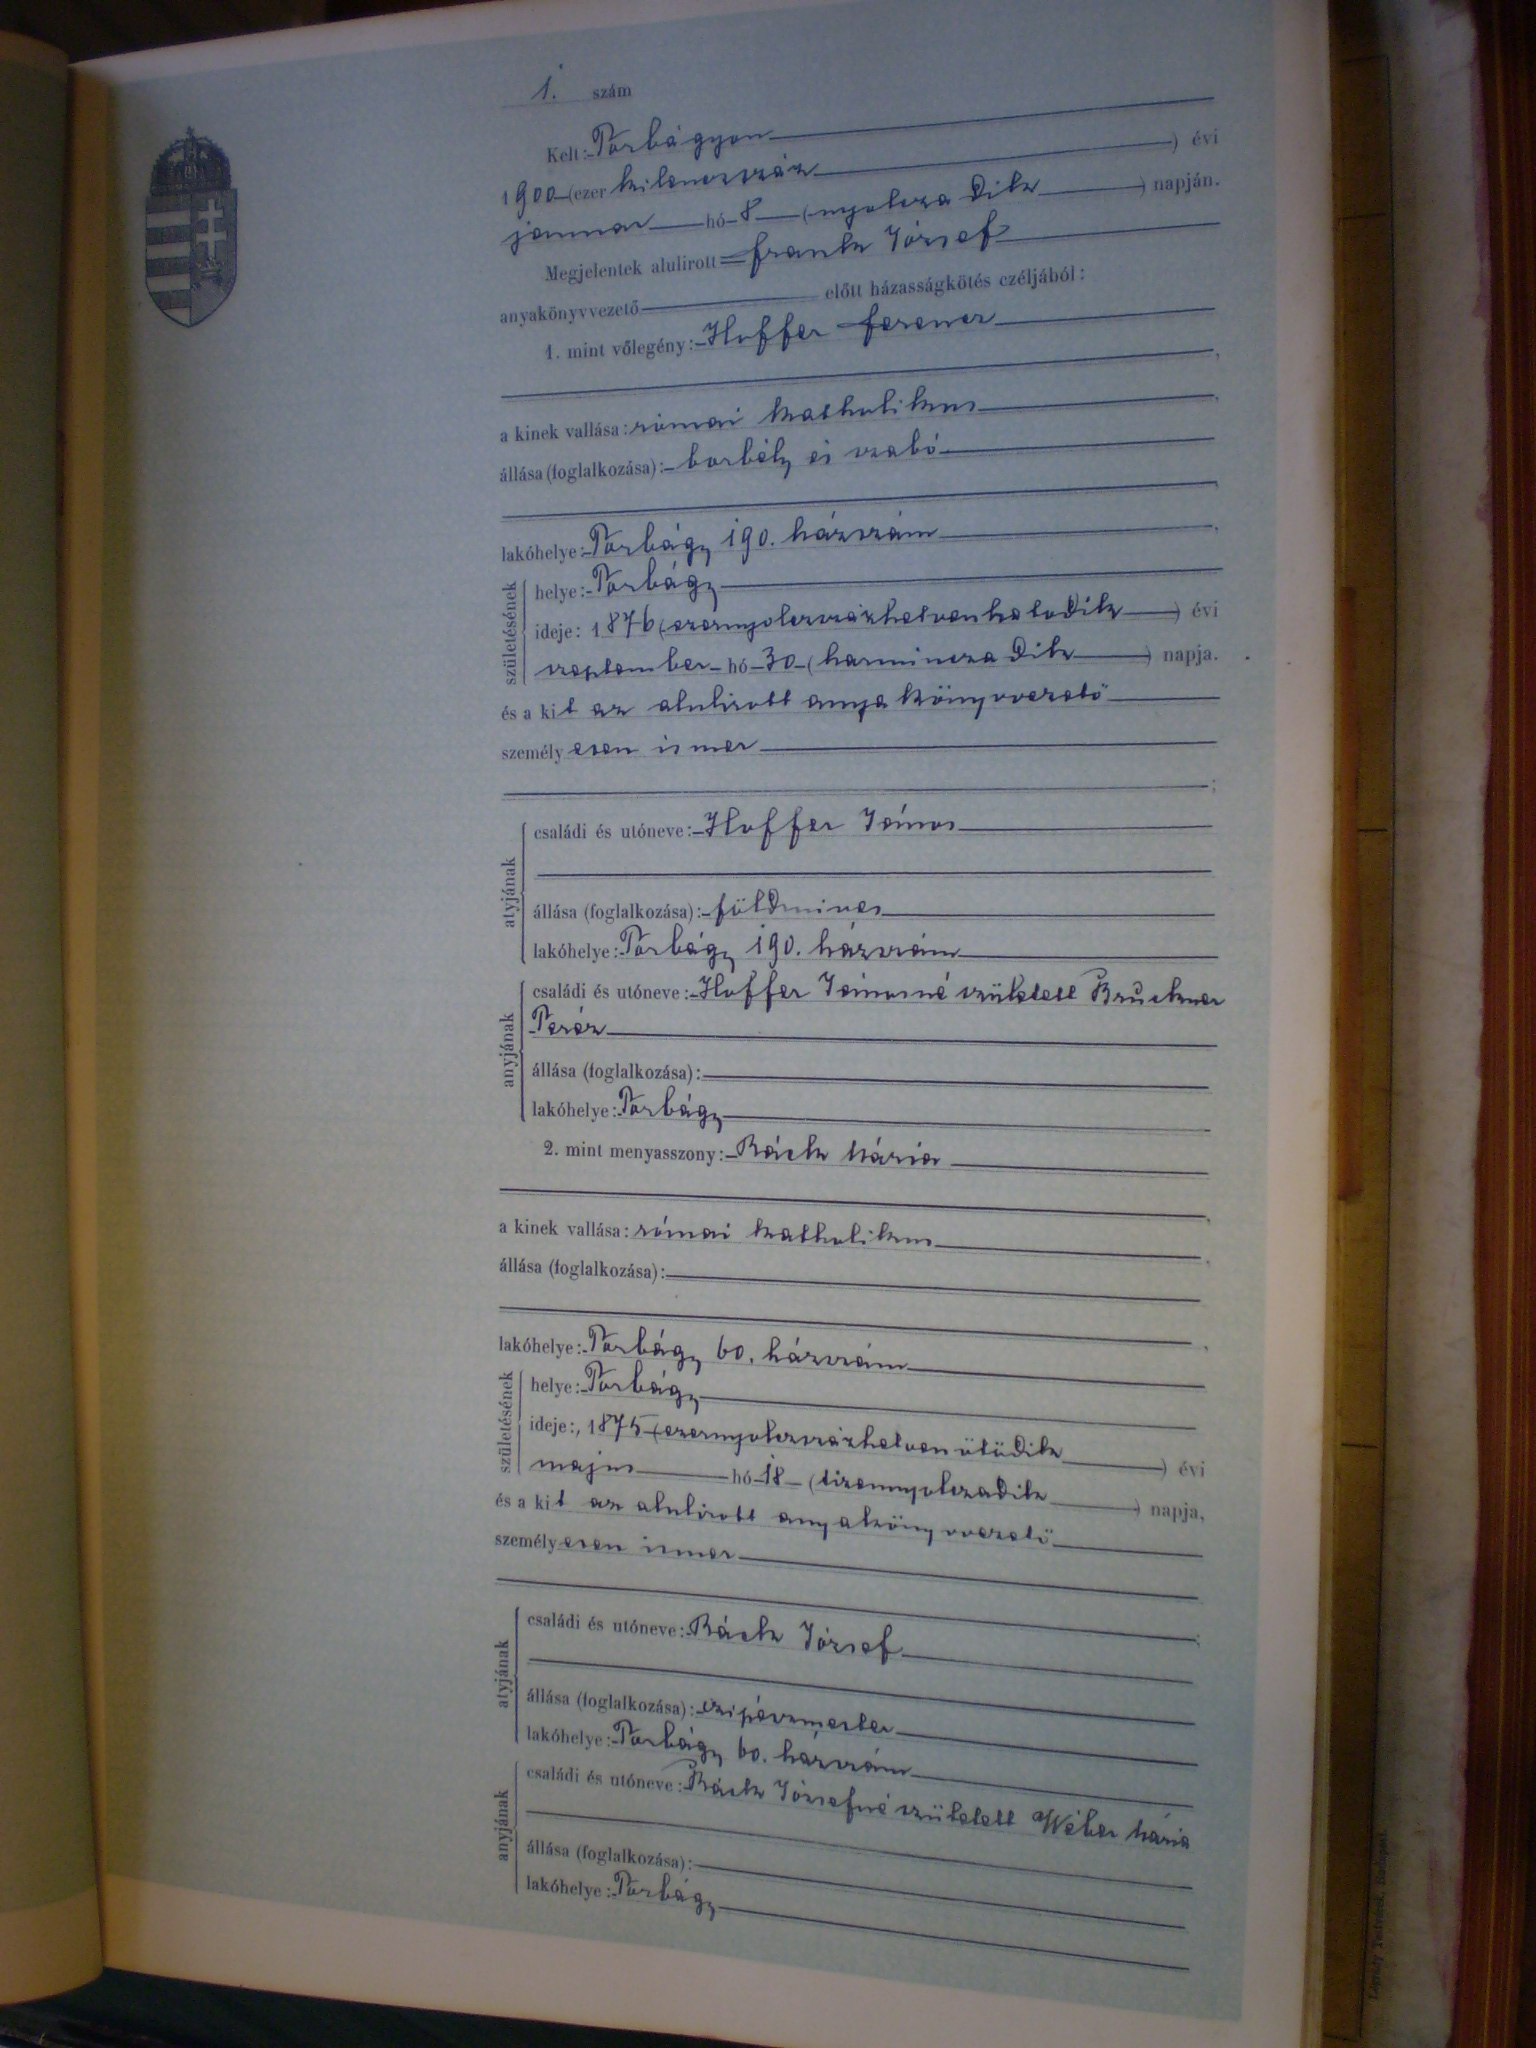 1. szám
Kelt: Torbágyon
1900 (ezer kilenczszáz ) évi
januar hó 8 (nyolcza dik ) napján.
Megjelentek alulirott frank József
anyakönyvvezető előtt házasságkötés czéljából:
1. mint vőlegény: Hoffer ferencz
a kinek vallása: római katholikus
állása (foglalkozása): borbély és szabó
lakóhelye: Torbágy 190. házszám
születésének
helye: Torbágy
ideje: 1876 (ezernyolczszázhetvenhatodik ) évi
szeptember hó 30 (harmincza dik ) napja.
és a kit az alulirott anyakönyvvezető
személyesen ismer
;
atyjának
családi és utóneve: Hoffer János
állása (foglalkozása): földmives
lakóhelye: Torbágy 190. házszám
anyjának
családi és utóneve: Hoffer Jánosné született Bruckner
Teréz
állása (foglalkozása):
lakóhelye: Torbágy
2. mint menyasszony: Ráck Mária
a kinek vallása: római katholikus
állása (foglalkozása):
lakóhelye: Torbágy 60. házszám
születésének
helye: Torbágy
ideje: 1875 (ezernyolczszázhetvenötödik ) évi
majus hó 18 (tizennyolczadik ) napja,
és a kit az alulirott anyakönyvvezető
személyesen ismer
;
atyjának
családi és utóneve: Ráck József
állása (foglalkozása): czipészmester
lakóhelye: Torbágy 60. házszám
anyjának
családi és utóneve: Ráck Józsefné született Wéber Mária
állása (foglalkozása):
lakóhelye: Torbágy